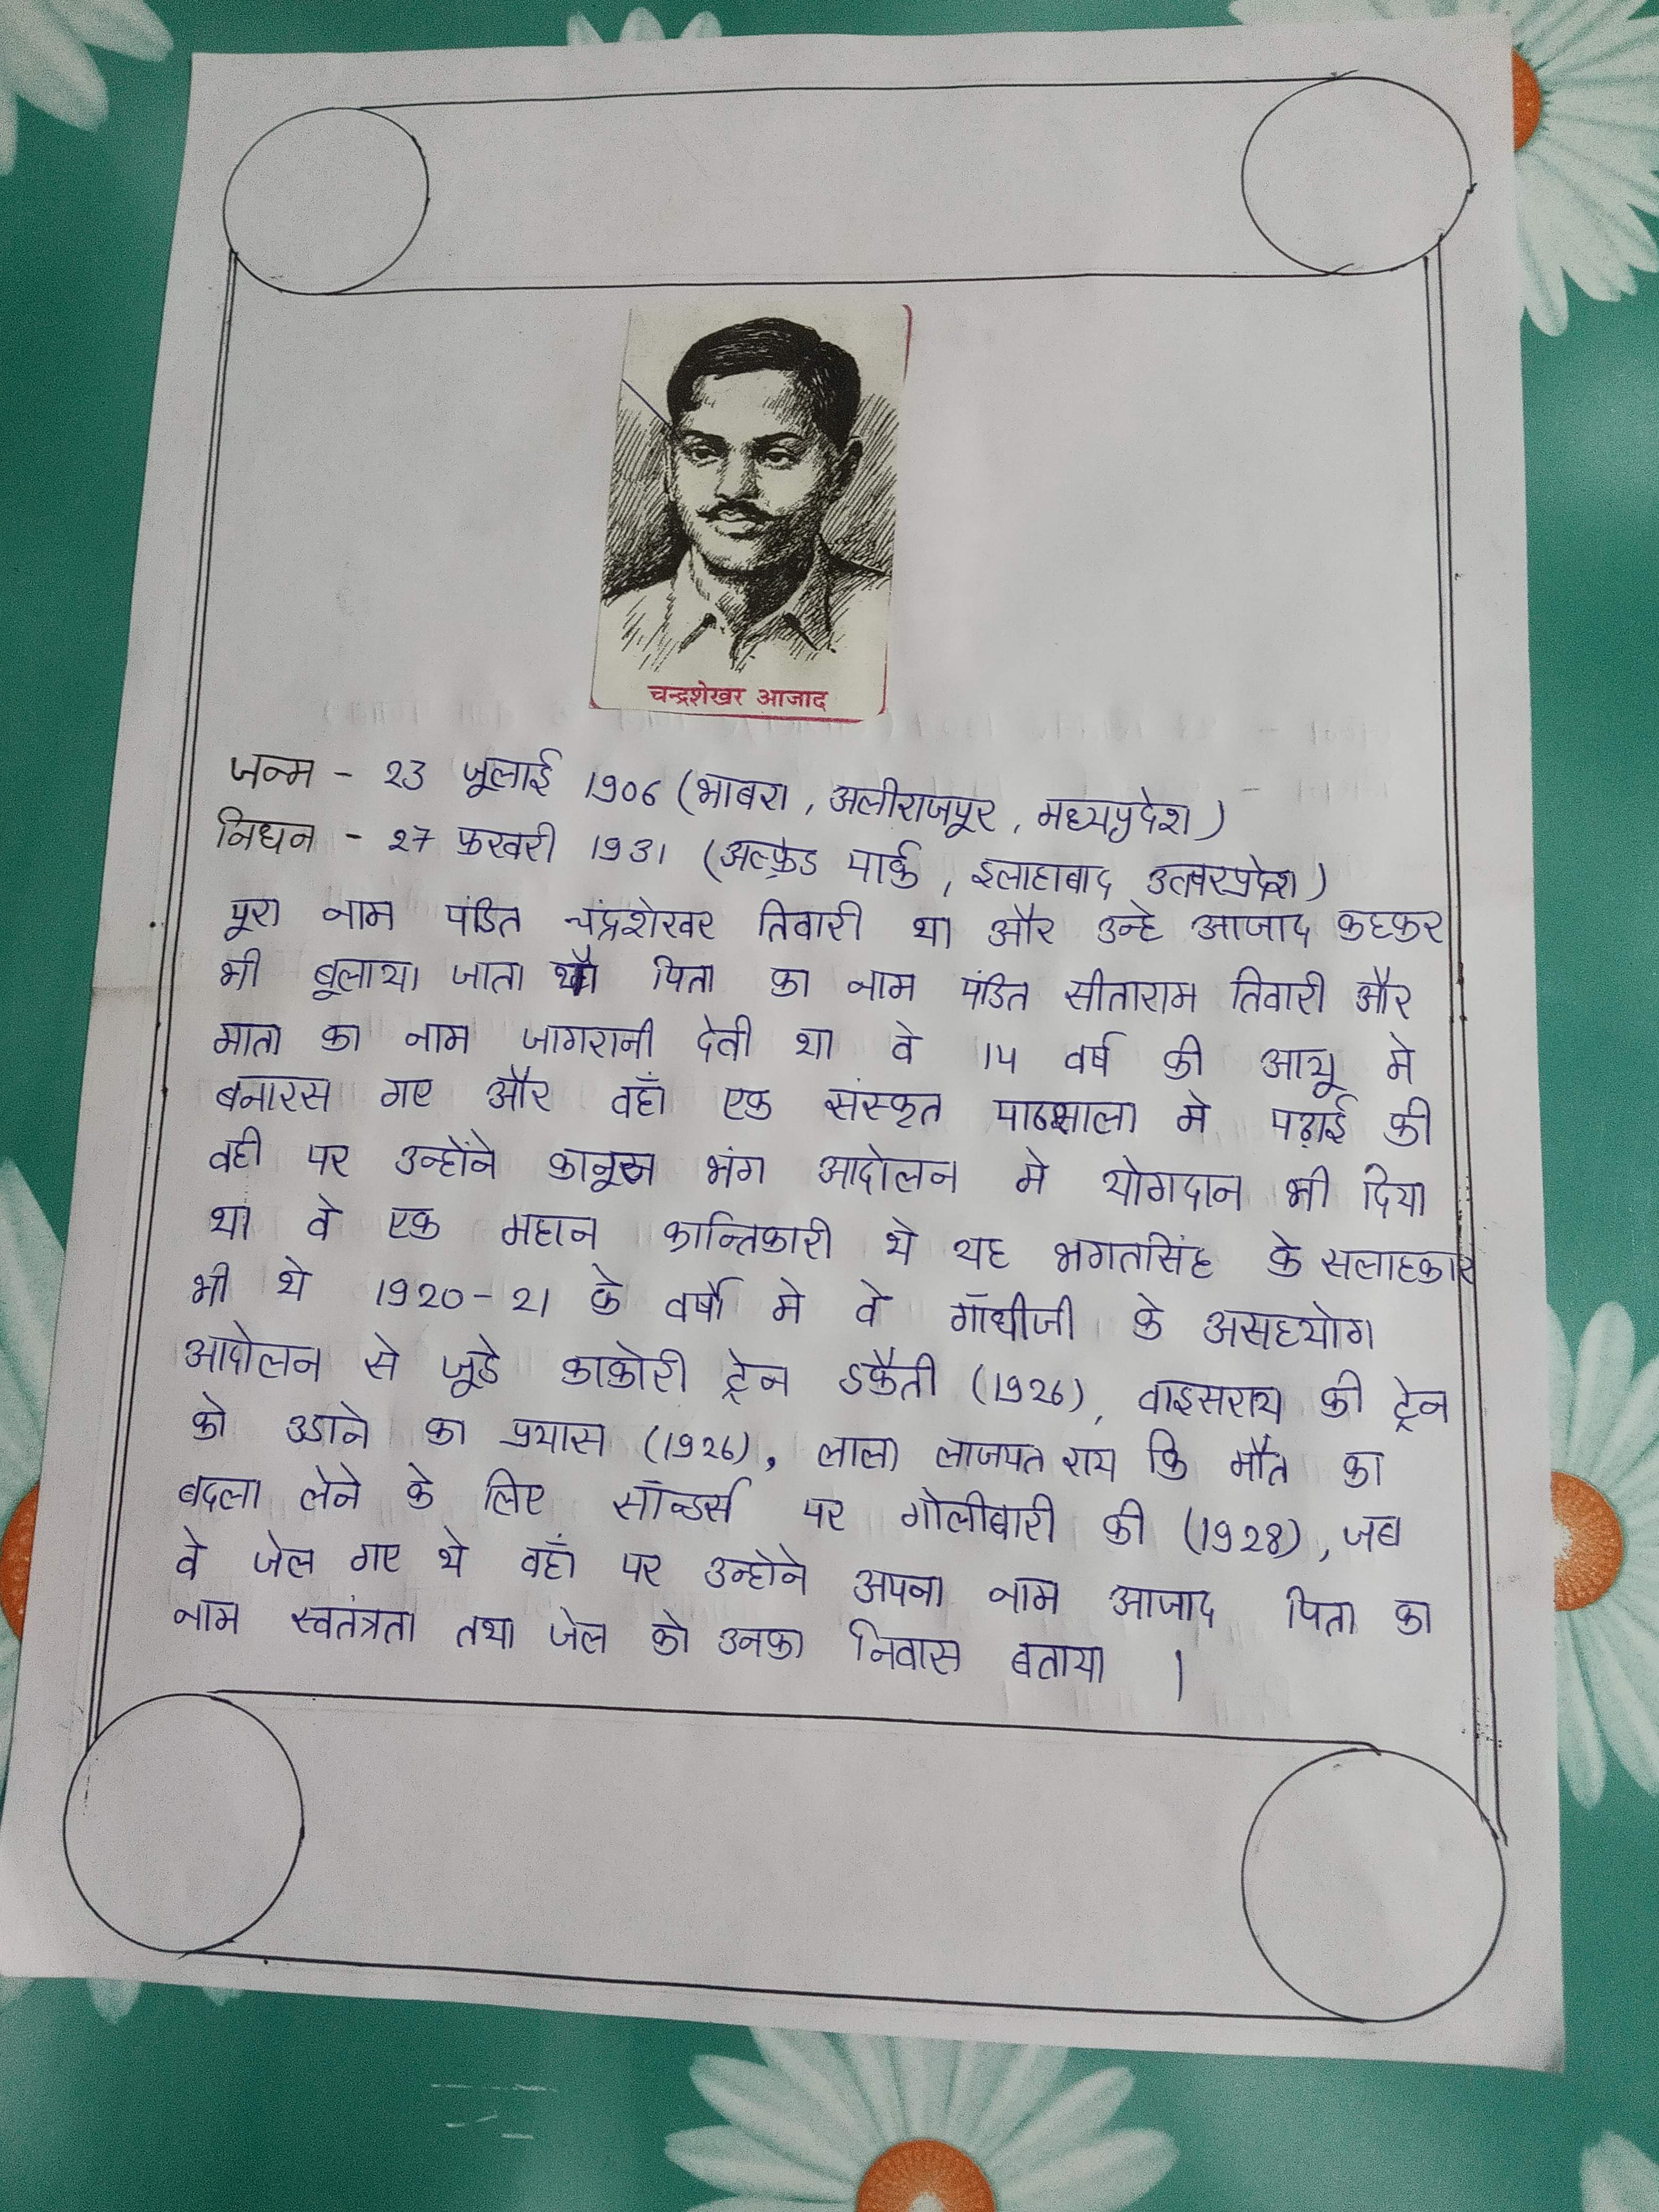 चन्द्रशेखर आजाद
जन्म - 23 जूलाई 1906 (भाबरा, अलीराजपूर, मध्यप्रदेश)
निधन - 27 फरवरी 1931 (अल्फ्रेड पार्क, इलाहाबाद उत्तरप्रदेश)
पूरा नाम पंडित चंद्रशेखर तिवारी था और उन्हे आजाद कहकर
भी बूलाया जाता था पिता का नाम पंडित सीताराम तिवारी और
माता का नाम जागरानी देवी था वे 14 वर्ष की आयू मे
बनारस गए और वहाँ एक संस्कृत पाठशाला मे पढ़ाई की
वही पर उन्होंने कानून भंग आदोलन मे योगदान भी दिया
था वे एक महान क्रान्तिकारी थे यह भगतसिंह के सलाहकार
भी थे 1920-21 के वर्षो मे वे गाँधीजी के असहयोग
आदोलन से जूडे काकोरी ट्रेन डकैती (1926), वाइसराय की ट्रेन
को उडाने का प्रयास (1926), लाला लाजपत राय कि मौत का
बदला लेने के लिए सॉन्डर्स पर गोलीबारी की (1928), जब
वे जेल गए थे वहाँ पर उन्होने अपना नाम आजाद पिता का
नाम स्वतंत्रता तथा जेल को उनका निवास बताया |